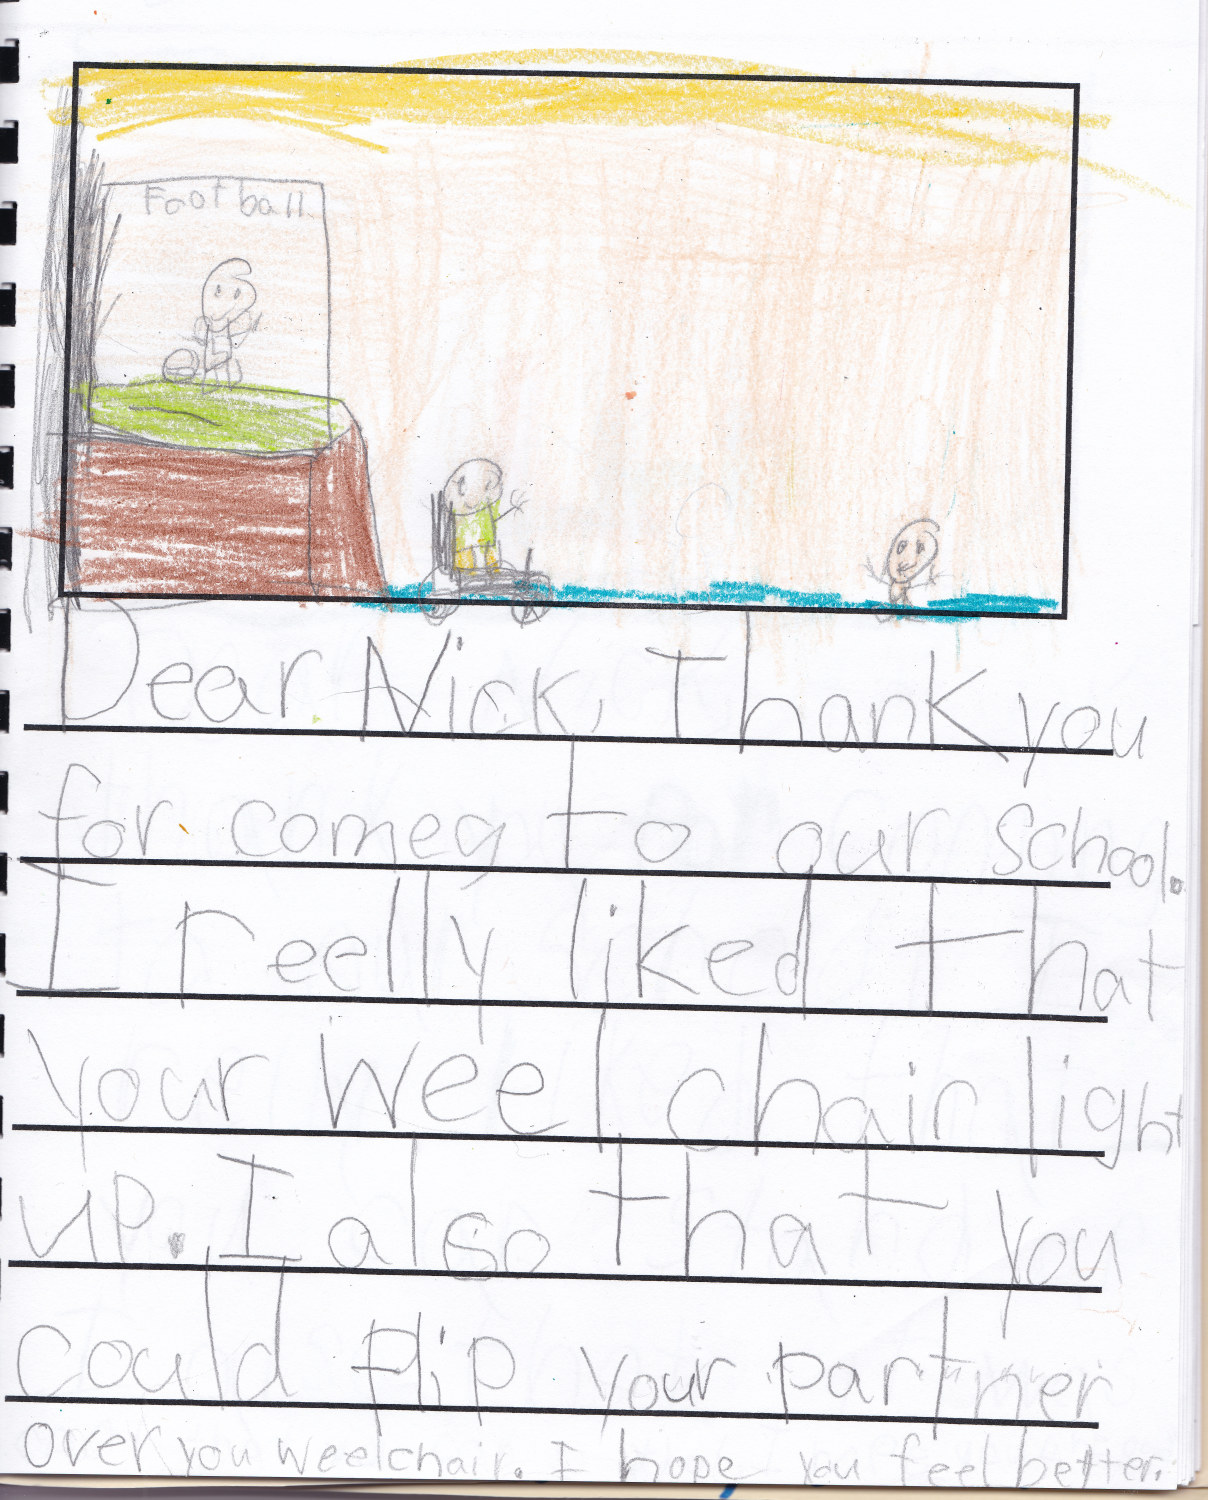 Football
Dear Nick, Thank you
for comeg to our school.
I reelly liked that
your weel chair light
up. I also that you
could flip your partner
over you weelchair. I hope you feel better.